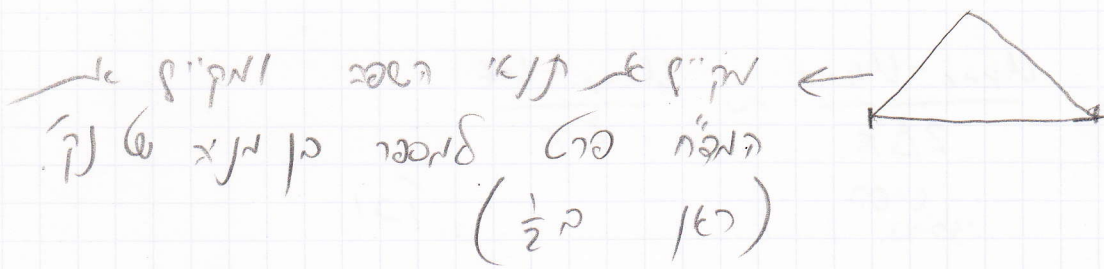 ← מקיים את תנאי השפה ומקיים את
המד"ח פרט למספר בן מניה של נק'
(כאן ב ½)